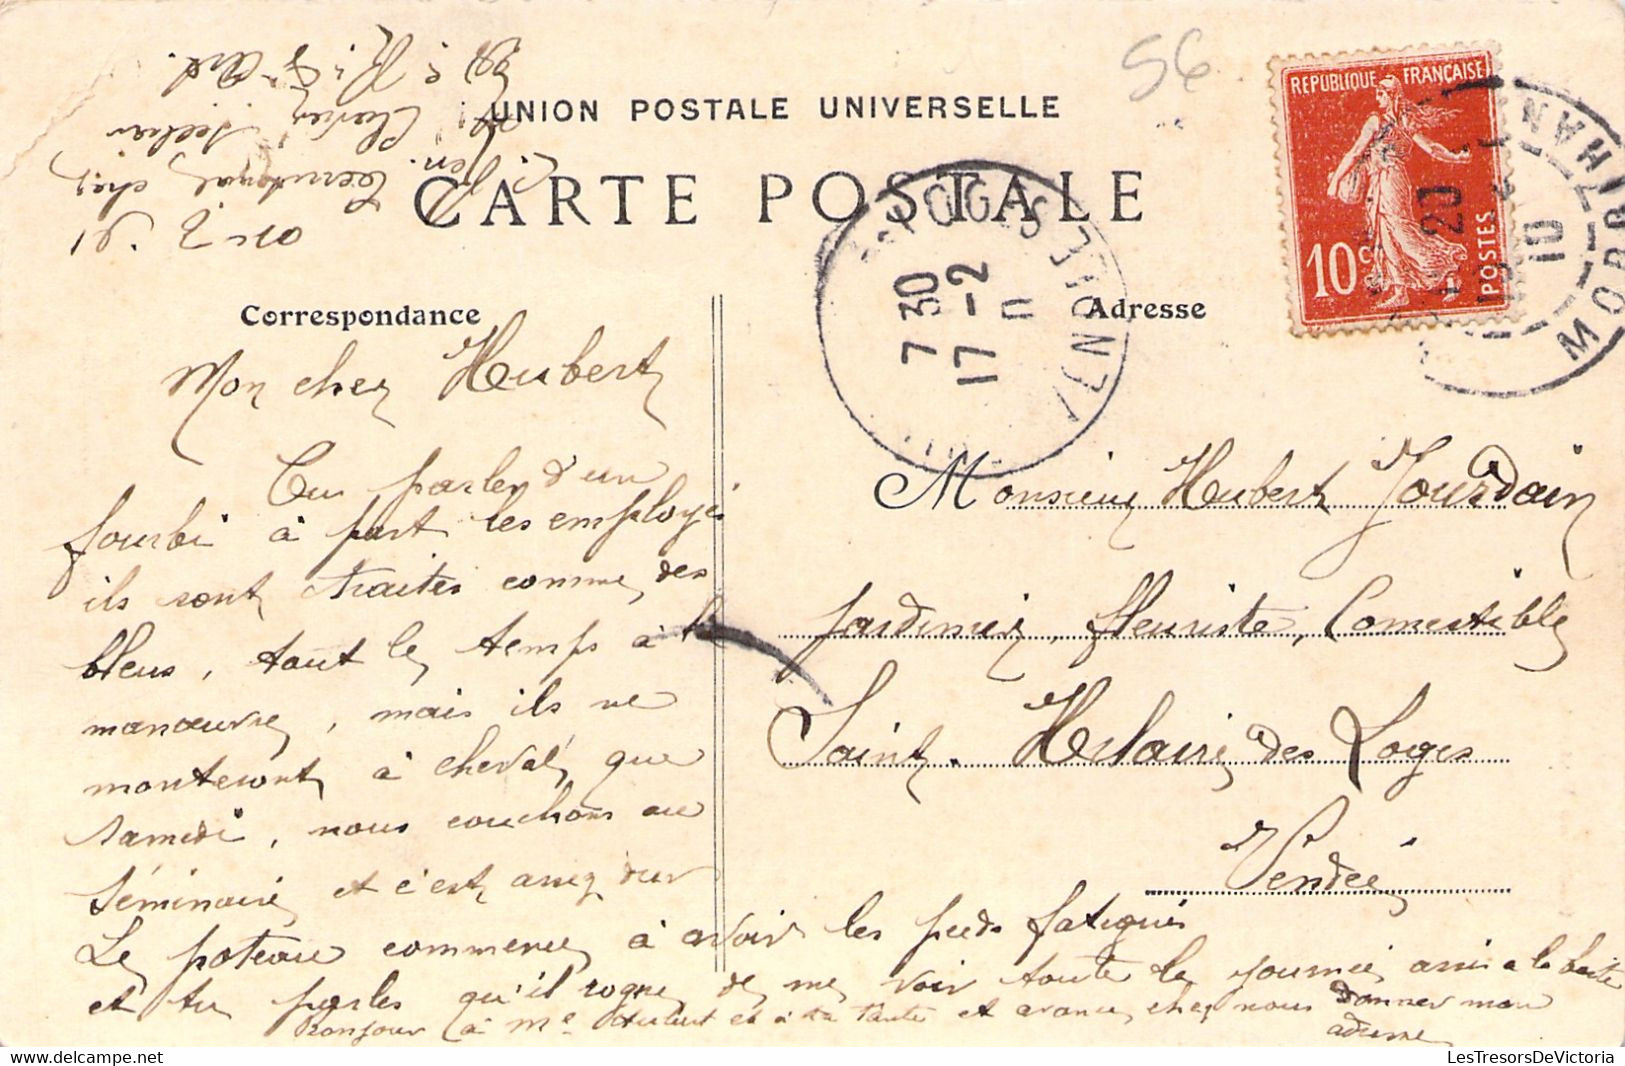 56
UNION POSTALE UNIVERSELLE
CARTE POSTALE
REPUBLIQUE FRANÇAISE
10 c
POSTES
MORBIHAN
10
7 30
17 - 2
11
VENDEE
Correspondance
Adresse
Mon cher Hubert
Tu parles d'un
fourbi à part les employés
ils sont traités comme des
bleus, tout le temps à la
manœuvre, mais ils ne
monteront à cheval que
samedi, nous couchons au
séminaire et c'est assez dur
Le poteau commence à avoir les pieds fatigués
et tu parles qu'il rogne de me voir toute la journée assis à la boîte
bonjour à Me Hubert et à ta tante et avance chez nous donner mon
adresse
Monsieur Hubert Jourdain
Jardinier, fleuriste, Comestible
Saint-Hilaire des Loges
Vendée
LesTresorsDeVictoria